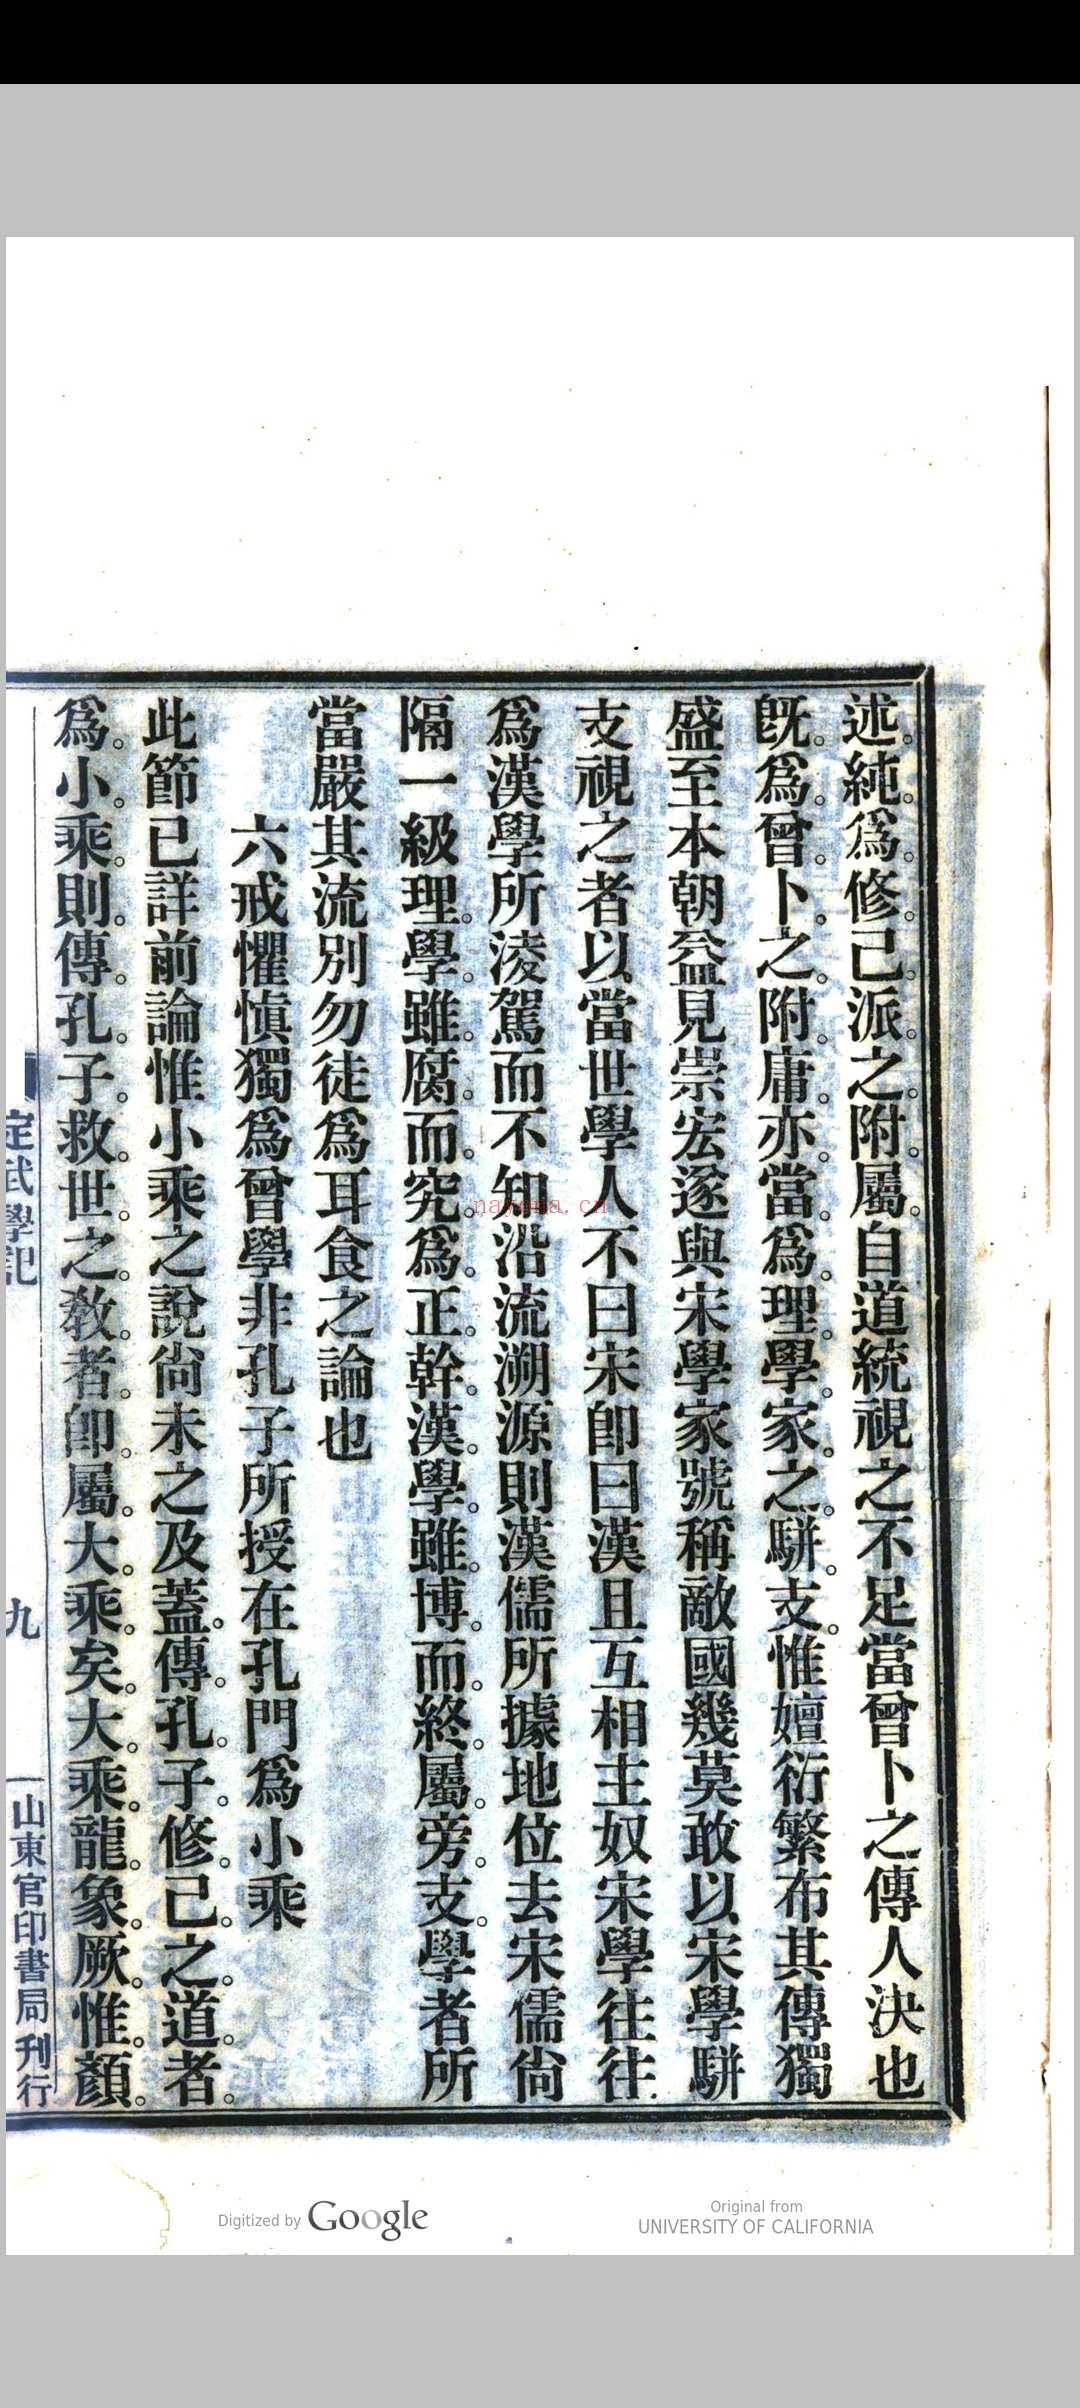 述純爲修己派之附屬自道統視之不足當曾卜之傳人決也
旣爲曾卜之附庸亦當爲理學家之駢支惟嬗衍繁布其傳獨
盛至本朝益見崇宏遂與宋學家號稱敵國幾莫敢以宋學駢
支視之者以當世學人不曰宋卽曰漢且互相主奴宋學往往
爲漢學所淩駕而不知沿流溯源則漢儒所據地位去宋儒尙
隔一級理學雖腐而究爲正幹漢學雖博而終屬旁支學者所
當嚴其流別勿徒爲耳食之論也
六戒懼愼獨爲曾學非孔子所授在孔門爲小乘
此節已詳前論惟小乘之說尙未之及蓋傳孔子修己之道者
爲小乘則傳孔子救世之敎者卽屬大乘矣大乘龍象厥惟顏
定武學記
九
山東官印書局刊行
nayona.cn
Digitized by Google
Original from
UNIVERSITY OF CALIFORNIA